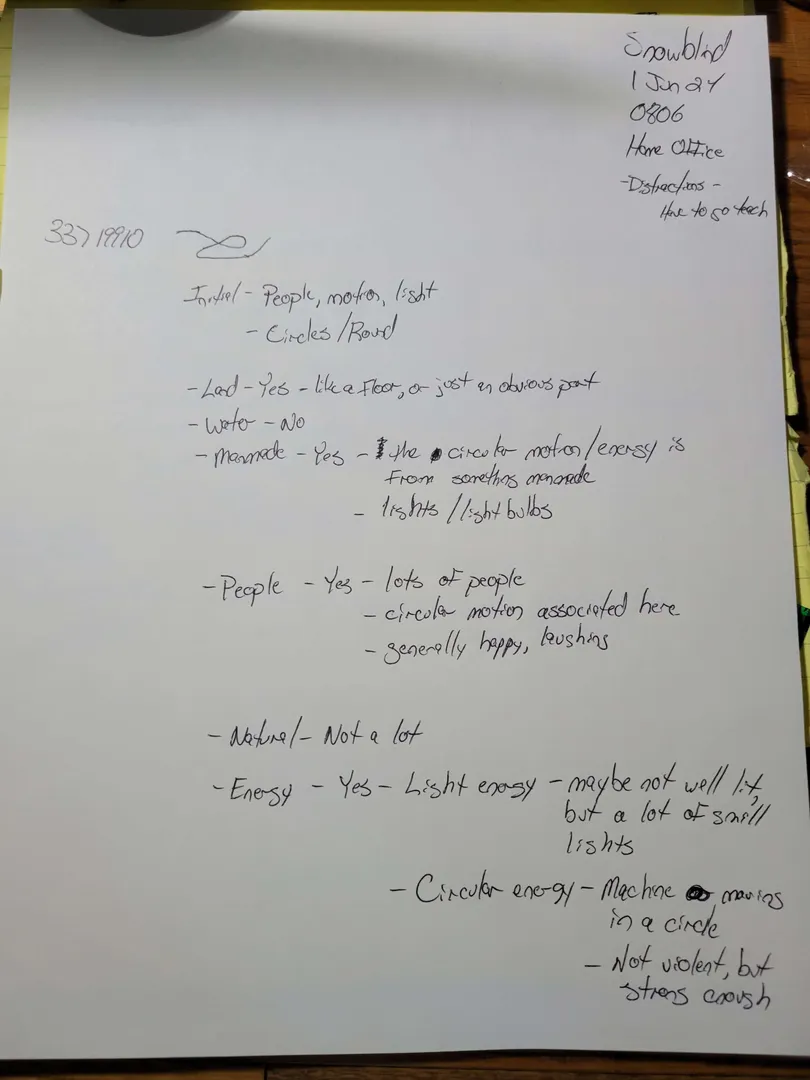 Snowblind
1 Jun 24
0806
Home Office
-Distractions -
Have to go teach
33719910
Initial - People, motion, light
- Circles/Round
- Land - Yes - like a floor, or just an obvious part
- Water - No
- Manmade - Yes - the circular motion/energy is
from something manmade
- lights/light bulbs
- People - Yes - lots of people
- circular motion associated here
- generally happy, laughing
- Natural - Not a lot
- Energy - Yes - Light energy - maybe not well lit,
but a lot of small
lights
- Circular energy - Machine moving
in a circle
- Not violent, but
strong enough